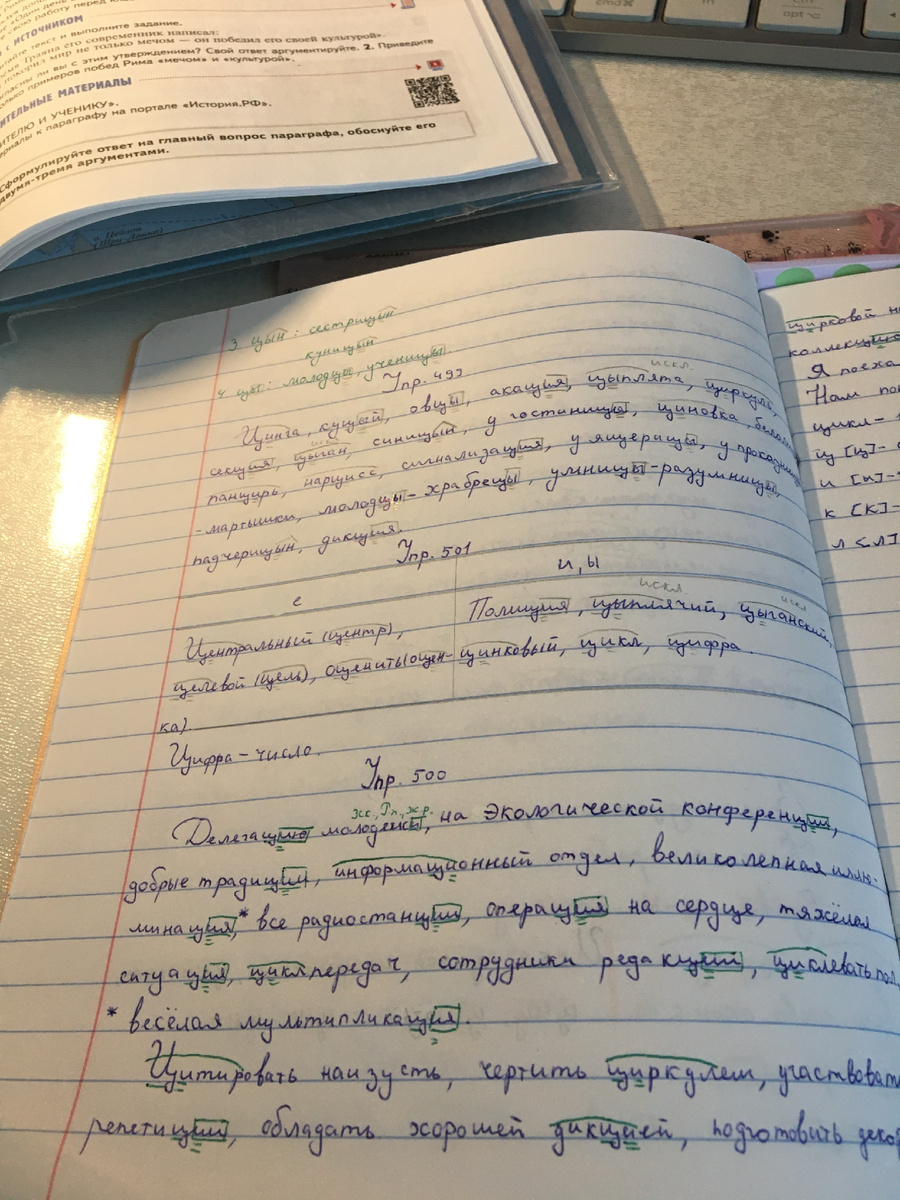 С ИСТОЧНИКОМ
текст и выполните задание.
Траяна его современник написал:
мир не только мечом — он победил его своей культурой».
ли вы с этим утверждением? Свой ответ аргументируйте. 2. Приведите
примеров побед Рима «мечом» и «культурой».
МАТЕРИАЛЫ
И УЧЕНИКУ».
к параграфу на портале «История.РФ».
Сформулируйте ответ на главный вопрос параграфа, обоснуйте его
двумя-тремя аргументами.
3 цын: сестрицын
куницын
4 цы: молодцы, ученицы.
Упр. 493
искл.
Цинга, куцый, овцы, акация, цыплята, циркуль,
искл
секция, цыган, синицын, у гостиницы, циновка,
панцирь, нарцисс, сигнализация, у ящерицы, у
-мартышки, молодцы-храбрецы, умницы-разумницы,
падчерицын, дикция.
Упр. 501
е
и, ы
искл
искл
Центральный (центр),
Полиция, цыплячий, цыганский,
целевой (цель), оценить (оцен-
цинковый, цикл, цифра.
ка).
Цифра – число.
Упр. 500
Делегацию молодежи, на Экологической конференции,
добрые традиции, информационный отдел, великолепная иллю-
минация,* все радиостанции, операция на сердце, тяжёлая
ситуация, цикл передач, сотрудники редакции, циклевать пол,
* весёлая мультипликация.
Цитировать наизусть, чертить циркулем, участвовать
репетиции, обладать хорошей дикцией, подготовить
цирковой
Я поеха
цикл-
к [к]-